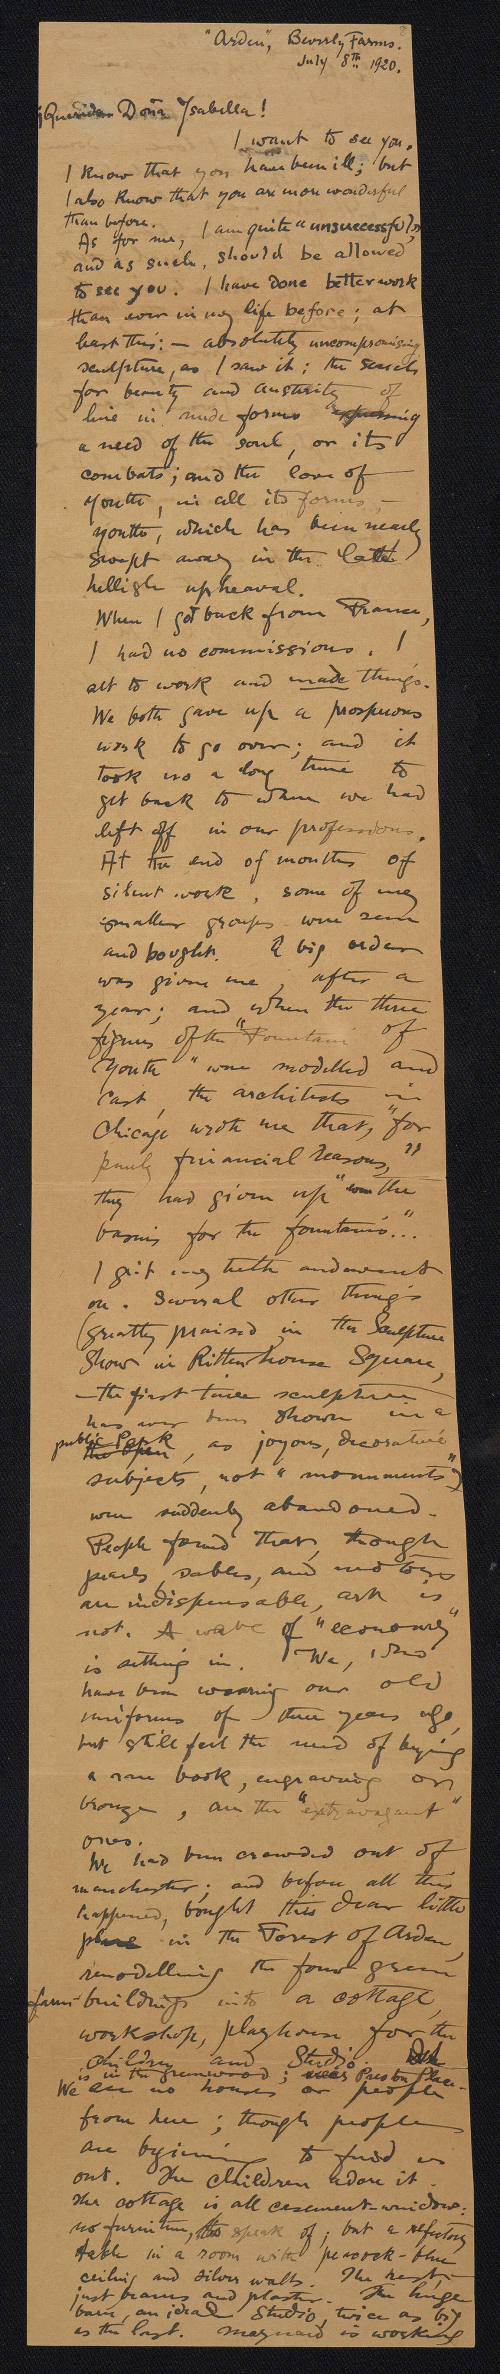 "Arden", Beverly Farms.
July 8th 1920.
¡Querida Doña Ysabella!
I want to see you.
I know that you have been ill; but
I also know that you are more wonderful
than before.
As for me, I am quite "unsuccessful",
and as such, should be allowed
to see you. I have done better work
than ever in my life before; at
least this: — absolutely uncompromising
sculpture, as I saw it; the search
for beauty and austerity of
line in nude forms expressing
a need of the soul, or its
combats; and the love of
Youth, in all its forms, —
youth, which has been nearly
swept away in the late
hellish upheaval.
When I got back from France,
I had no commissions. I
set to work and made things.
We both gave up a prosperous
work to go over; and it
took us a long time to
get back to where we had
left off in our professions.
At the end of months of
silent work, some of my
smaller groups were seen
and bought. A big order
was given me, after a
year; and when the three
figures of the "Fountain of
Youth" were modelled and
cast, the architects in
Chicago wrote me that, "for
purely financial reasons,"
they had given up "the
basins for the fountains."..
I grit my teeth and went
on. Several other things
(greatly praised in the Sculpture
Show in Rittenhouse Square,
— the first time sculpture
has ever been shown in a
public Park, as joyous, decorative
subjects, not "monuments")
were suddenly abandoned.
People found that, though
pearls, sables, and motors
are indispensable, art is
not. A wave of "economy"
is setting in. We, who
have been wearing our old
uniforms of three years ago,
but still feel the need of buying
a rare book, engraving or
bronze, are the "extravagant"
ones.
We had been crowded out of
Manchester; and before all this
happened, bought this dear little
place in the Forest of Arden,
remodelling the four green
farm-buildings into a cottage,
workshop, playhouse for the
children and Studio.
is in the greenwood; near Preston Place.
We see no houses or people
from here; though people
are beginning to find us
out. The children adore it.
The cottage is all casement-windows:
no furniture, to speak of; but a refectory
table in a room with peacock-blue
ceiling and silver walls. The rest
just beams and plaster. The huge
barn, an ideal Studio, twice as big
as the last. Maynard is working